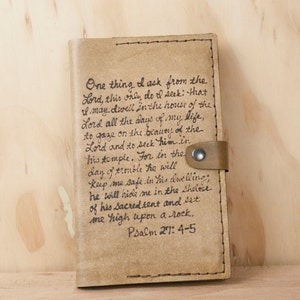 One thing I ask from the
Lord, this only do I seek: that
I may dwell in the house of the
Lord all the days of my life,
to gaze on the beauty of the
Lord and to seek him in
his temple. For in the
day of trouble he will
keep me safe in his dwelling;
he will hide me in the shelter
of his sacred tent and set
me high upon a rock.
Psalm 27: 4-5